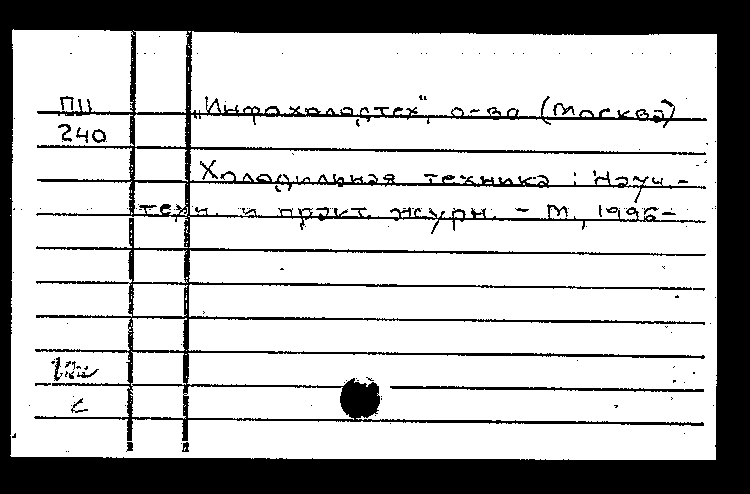 П11
240
„Инфахолодтех", о-во (Москва)
Холодильная техника : Науч.-
техн. и практ. журн. - М., 1996-